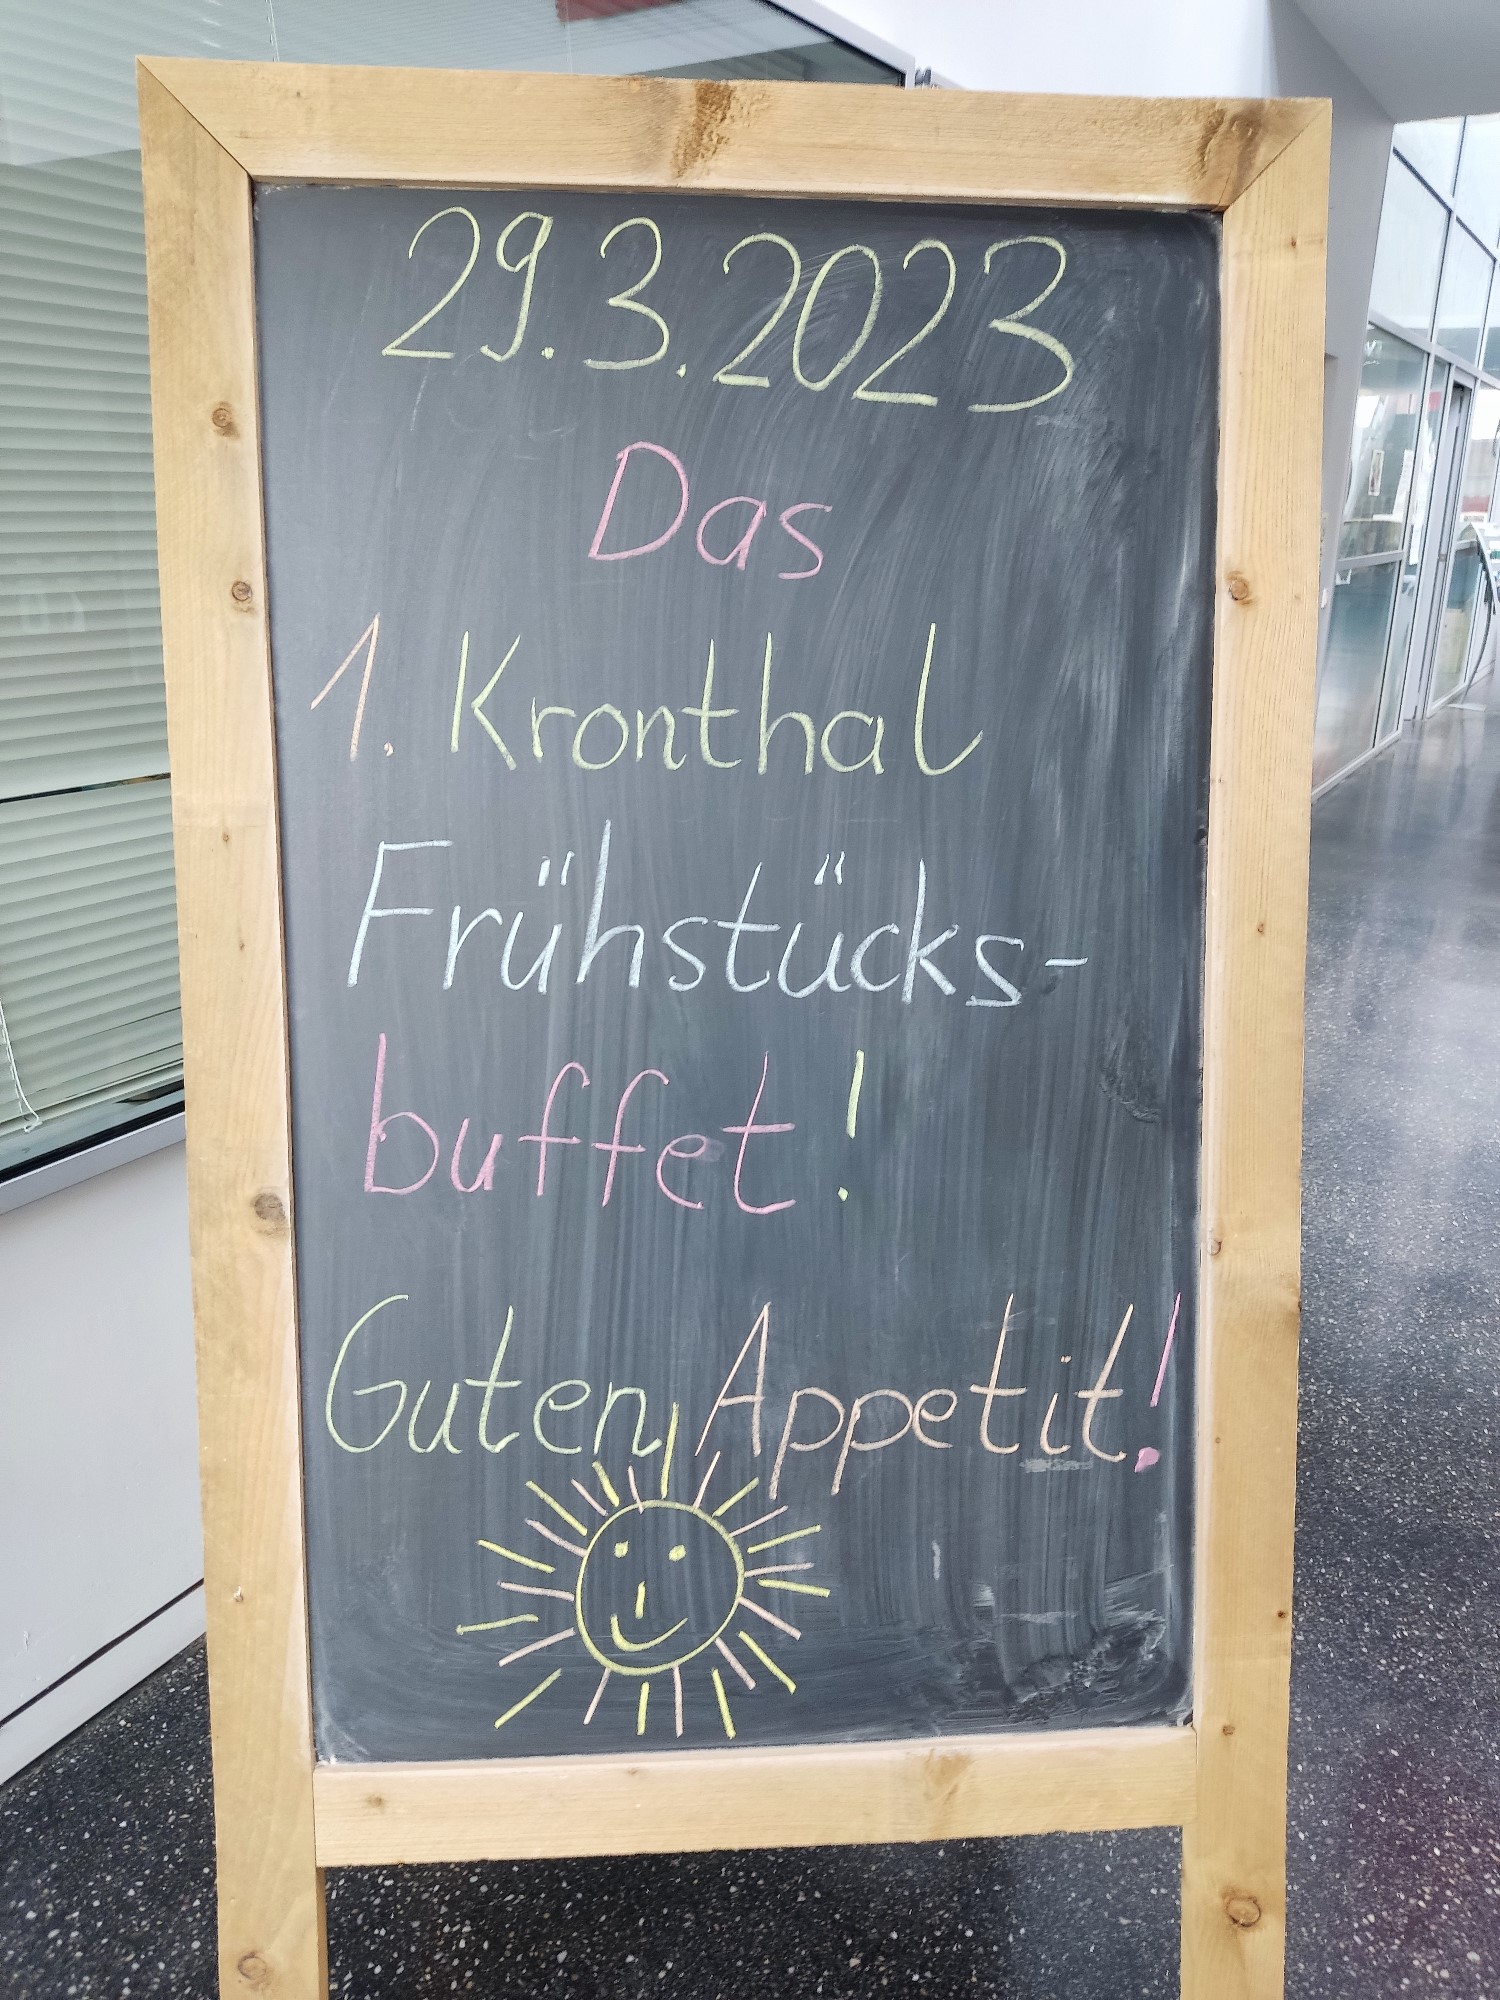 29.3.2023
Das
1. Kronthal
Frühstücks-
buffet!
Guten Appetit!